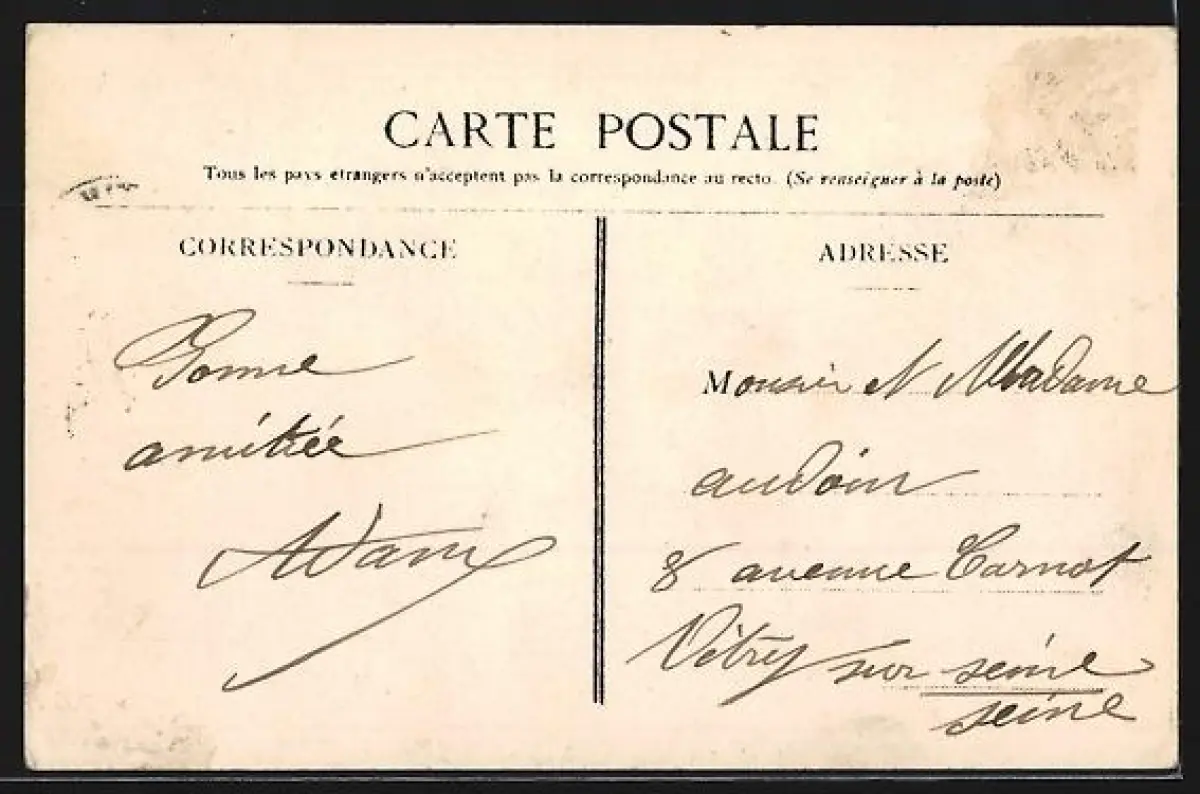 CARTE POSTALE
Tous les pays étrangers n'acceptent pas la correspondance au recto. (Se renseigner à la poste)
CORRESPONDANCE
Bonne
amitiée
Adam
ADRESSE
Monsieur et Madame
audoin
8 avenue Carnot
Vitry sur seine
seine